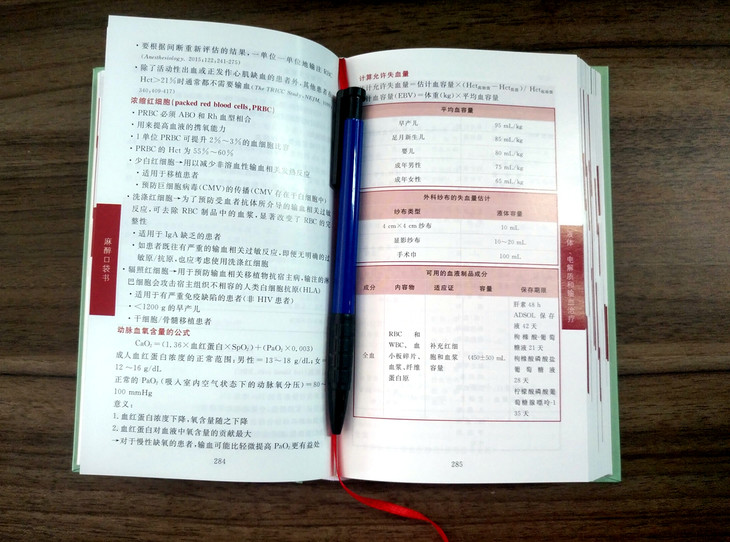 ·要根据间断重新评估的结果,一单位一单位地输注RBC
(Anesthesiology, 2015;122,241-275)
·除了活动性出血或正发作心肌缺血的患者外,其他患者
Hct>21%时通常都不需要输血(The TRICC Study, NEJM,
340,409-417)
浓缩红细胞(packed red blood cells,PRBC)
·PRBC必须ABO和Rh血型相合
·用来提高血液的携氧能力
·1单位PRBC可提升2%~3%的血细胞比容
·PRBC的Hct为55%~60%
·少白红细胞→用以减少非溶血性输血相关发热反应
·适用于移植患者
·预防巨细胞病毒(CMV)的传播(CMV存在于白细胞中)
·洗涤红细胞→为了预防受血者抗体所介导的输血相关过敏
反应,可去除RBC制品中的血浆,显著改变了RBC的完
整性
·适用于IgA缺乏的患者
·如患者既往有严重的输血相关过敏反应,即便无明确的过
敏原/抗原,也应考虑使用洗涤红细胞
·辐照红细胞→用于预防输血相关移植物抗宿主病,输注的淋
巴细胞会攻击宿主组织不相容的人类白细胞抗原(HLA)
·适用于有严重免疫缺陷的患者(非HIV患者)
·<1200g的早产儿
·干细胞/骨髓移植患者
动脉血氧含量的公式
CaO₂=(1.36×血红蛋白×SpO₂)+(PaO₂×0.003)
成人血红蛋白浓度的正常范围:男性=13~18 g/dL;女=
12~16 g/dL
正常的PaO₂(吸入室内空气状态下的动脉氧分压)=80~
100 mmHg
意义:
1.血红蛋白浓度下降,氧含量随之下降
2.血红蛋白对血液中氧含量的贡献最大
→对于慢性缺氧的患者,输血可能比轻微提高PaO₂更有益处
284
麻醉口袋书
计算允许失血量
计允许失血量=估计血容量×(Hct
-Hct
)/Hct
计血容量(EBV)=体重(kg)×平均血容量
平均血容量
早产儿 95 mL/kg
足月新生儿 85 mL/kg
婴儿 80 mL/kg
成年男性 75 mL/kg
成年女性 65 mL/kg
外科纱布的失血量估计
纱布类型 液体容量
4 cm×4 cm纱布 10 mL
显影纱布 10~20 mL
手术巾 100 mL
可用的血液制品成分
成分 内容物 适应证 容量 保存期限
全血
RBC和
WBC、血
小板碎片、
血浆、纤维
蛋白原
补充红细
胞和血浆
容量
(450±50) mL
肝素48 h
ADSOL保存
液42天
枸橼酸葡萄
糖液21天
枸橼酸磷酸盐
葡萄糖液
28天
柠檬酸磷酸盐葡
萄糖腺嘌呤-1
35天
285
液体、电解质和输血治疗